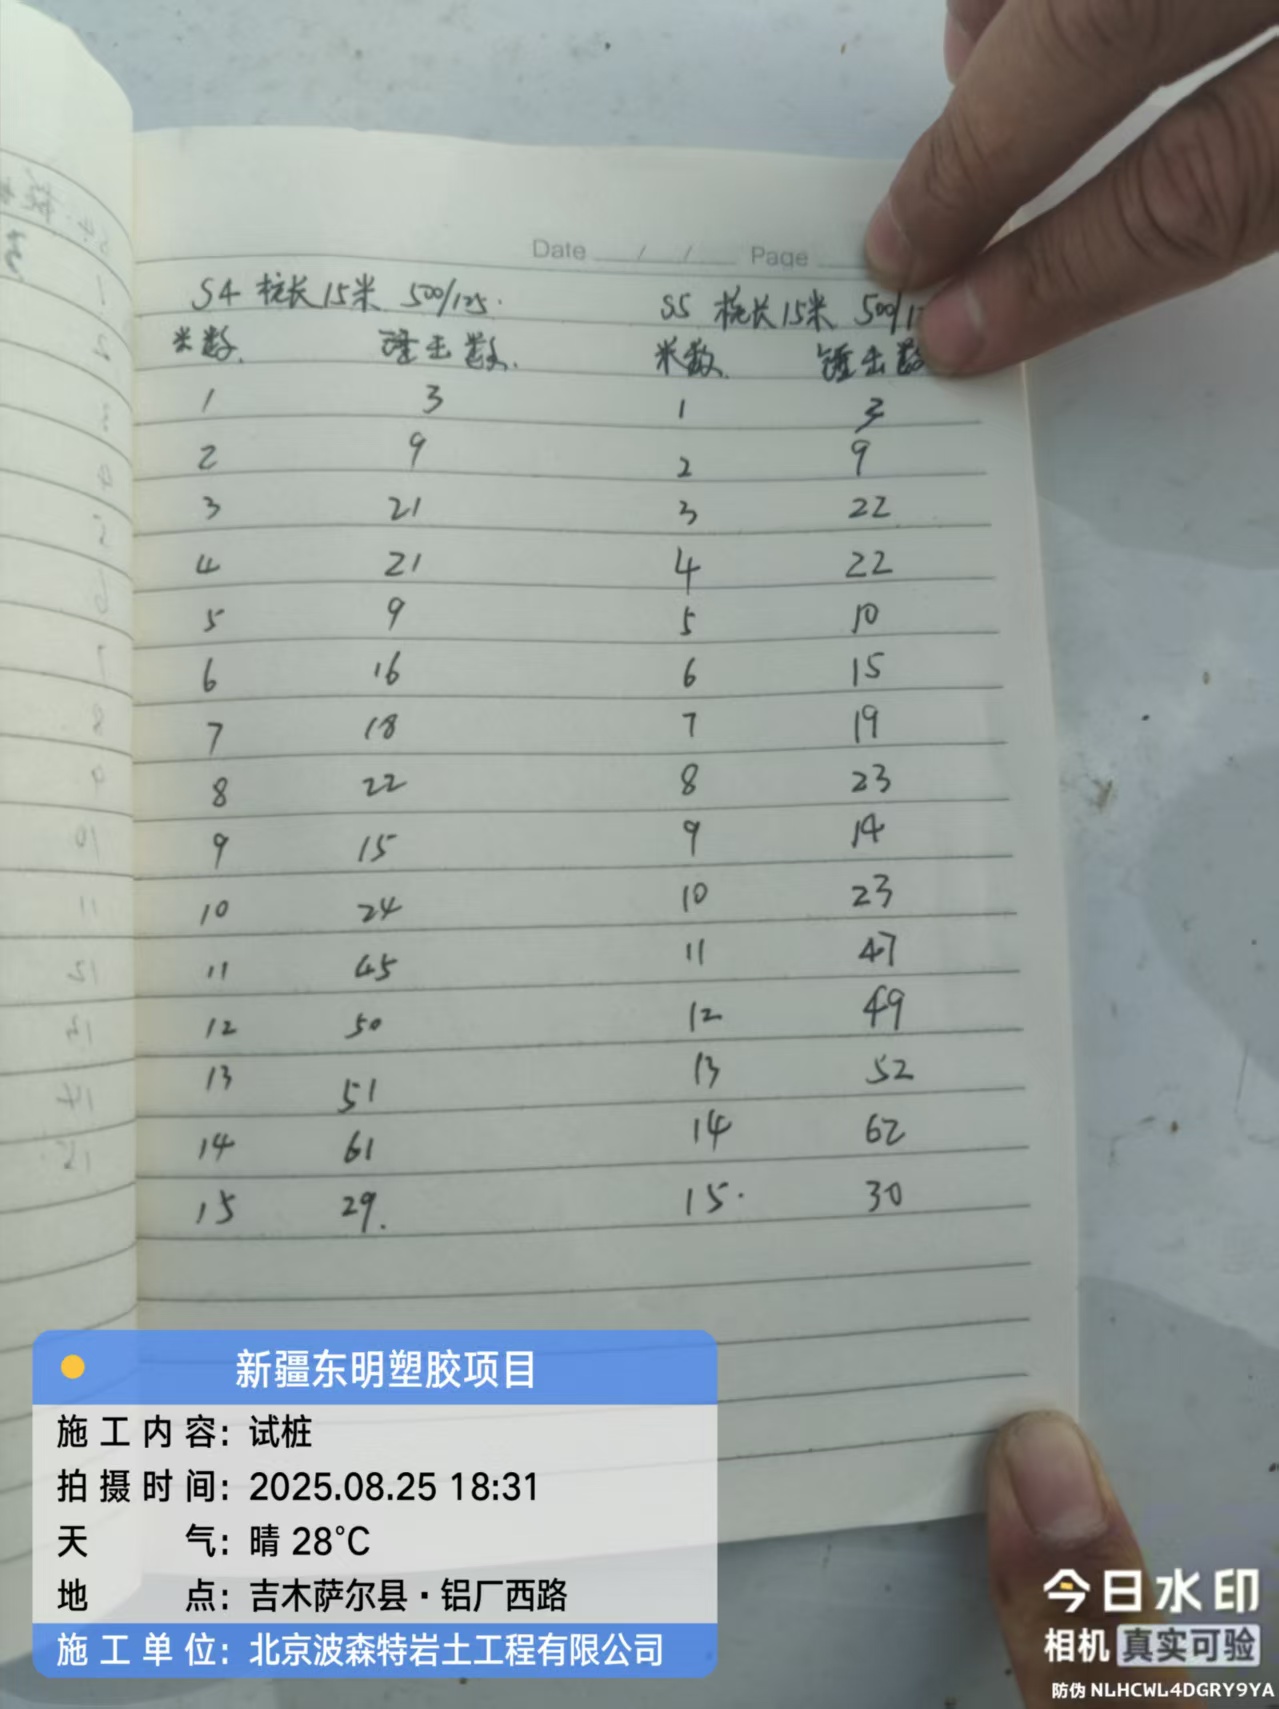 Date / / Page
S4 桩长15米 500/125. S5 桩长15米 500/1
米数. 锤击数. 米数. 锤击数
1 3 1 3
2 9 2 9
3 21 3 22
4 21 4 22
5 9 5 10
6 16 6 15
7 18 7 19
8 22 8 23
9 15 9 14
10 24 10 23
11 45 11 47
12 50 12 49
13 51 13 52
14 61 14 62
15 29. 15. 30
新疆东明塑胶项目
施工内容：试桩
拍摄时间：2025.08.25 18:31
天气：晴 28℃
地点：吉木萨尔县·铝厂西路
施工单位：北京波森特岩土工程有限公司
今日水印
相机 真实可验
防伪 NLHCWL4DGRY9YA